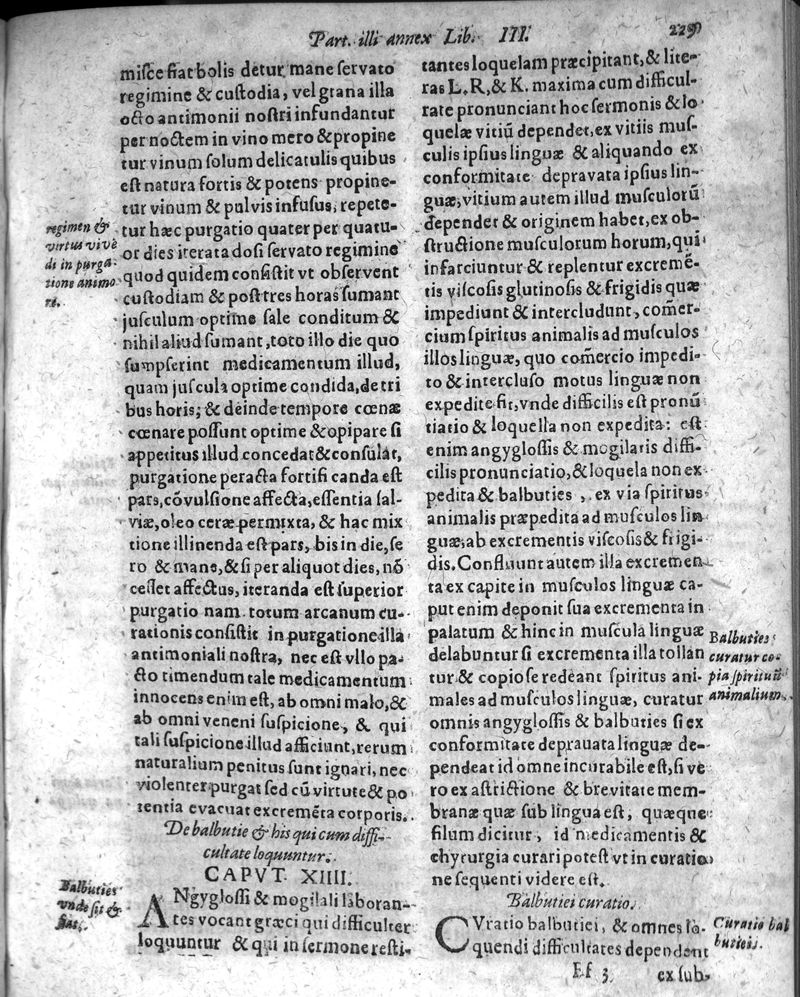 Part. illi annex Lib. III. 229
misce fiat bolis detur mane servato
regimine & custodia, vel grana illa
octo antimonii nostri infundantur
per noctem in vino mero & propine
tur vinum solum delicatulis quibus
est natura fortis & potens propine-
tur vinum & pulvis infusus, repete-
tur hæc purgatio quater per quatu-
or dies iterata dosi servato regimine
quod quidem consistit vt observent
custodiam & post tres horas sumant
jusculum optime sale conditum &
nihil aliud sumant, toto illo die quo
sumpserint medicamentum illud,
quam juscula optime condida, de tri
bus horis; & deinde tempore cœnæ
cœnare possunt optime & opipare si
appetitus illud concedat & consulāt,
purgatione peracta fortifi canda est
pars, cōvulsione affecta, essentia sal-
viæ, oleo ceræ permixta, & hac mix
tione illinenda est pars, bis in die, se
ro & mane, & si per aliquot dies, nō
cesset affectus, iteranda est superior
purgatio nam totum arcanum cu-
rationis consistit in purgatione illa
antimoniali nostra, nec est vllo pa-
cto timendum tale medicamentum
innocens enim est, ab omni malo, &
ab omni veneni suspicione, & qui
tali suspicione illud afficiunt, rerum
naturalium penitus sunt ignari, nec
violenter purgat sed cū virtute & po
tentia evacuat excremēta corporis.
De balbutie & his qui cum diffi-
cultate loquuntur.
CAPVT XIIII.
ANgyglossi & mogilali laboran-
tes vocant græci qui difficulter
loquuntur & qui in sermone resti-
regimen &
virtus vivē
di in purga-
tione animo
re.
Balbuties
vnde sit &
tantes loquelam præcipitant, & lite-
ras L. R, & K. maxima cum difficul-
rate pronunciant hoc sermonis & lo
quelæ vitiū dependet, ex vitiis mus-
culis ipsius linguæ & aliquando ex
conformitate depravata ipsius lin-
guæ, vitium autem illud musculorū
dependet & originem habet, ex ob-
structione musculorum horum, qui
infarciuntur & replentur excremē-
tis viscosis glutinosis & frigidis quæ
impediunt & intercludunt, com̄er-
cium spiritus animalis ad musculos
illos linguæ, quo com̄ercio impedi-
to & intercluso motus linguæ non
expedite fit, vnde difficilis est pronū
tiatio & loquella non expedita: est
enim angyglossis & mogilatis diffi-
cilis pronunciatio, & loquela non ex
pedita & balbuties, ex via spiritus
animalis præpedita ad musculos lin
guæ, ab excrementis viscosis & frigi-
dis. Confluunt autem illa excremen
ta ex capite in musculos linguæ ca-
put enim deponit sua excrementa in
palatum & hinc in muscula linguæ
delabuntur si excrementa illa tollan
tur & copiose redeant spiritus ani-
males ad musculos linguæ, curatur
omnis angyglossis & balbuties si ex
conformitate deprauata linguæ de-
pendeat id omne incurabile est, si ve
ro ex astrictione & brevitate mem-
branæ quæ sub lingua est, quæque
filum dicitur, id medicamentis &
chyrurgia curari potest vt in curatio
ne sequenti videre est.
Balbutiei curatio.
CVratio balbutiei, & omnes lo-
quendi difficultates dependent
Balbuties
curatur co-
pia spirituū
animalium.
Curatio bal
butieis.
Ff 3 ex sub-